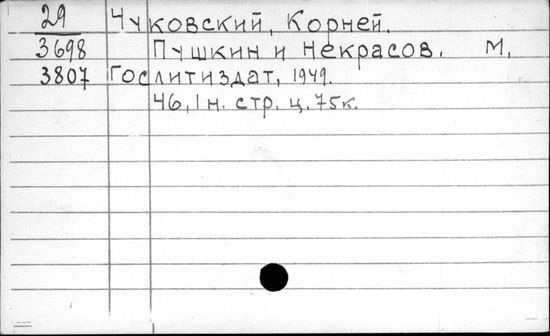 29 Чуковский, Корней.
3698 Пушкин и Некрасов. М,
3807 Гослитиздат, 1949.
46, 1 н. стр. ц. 75к.